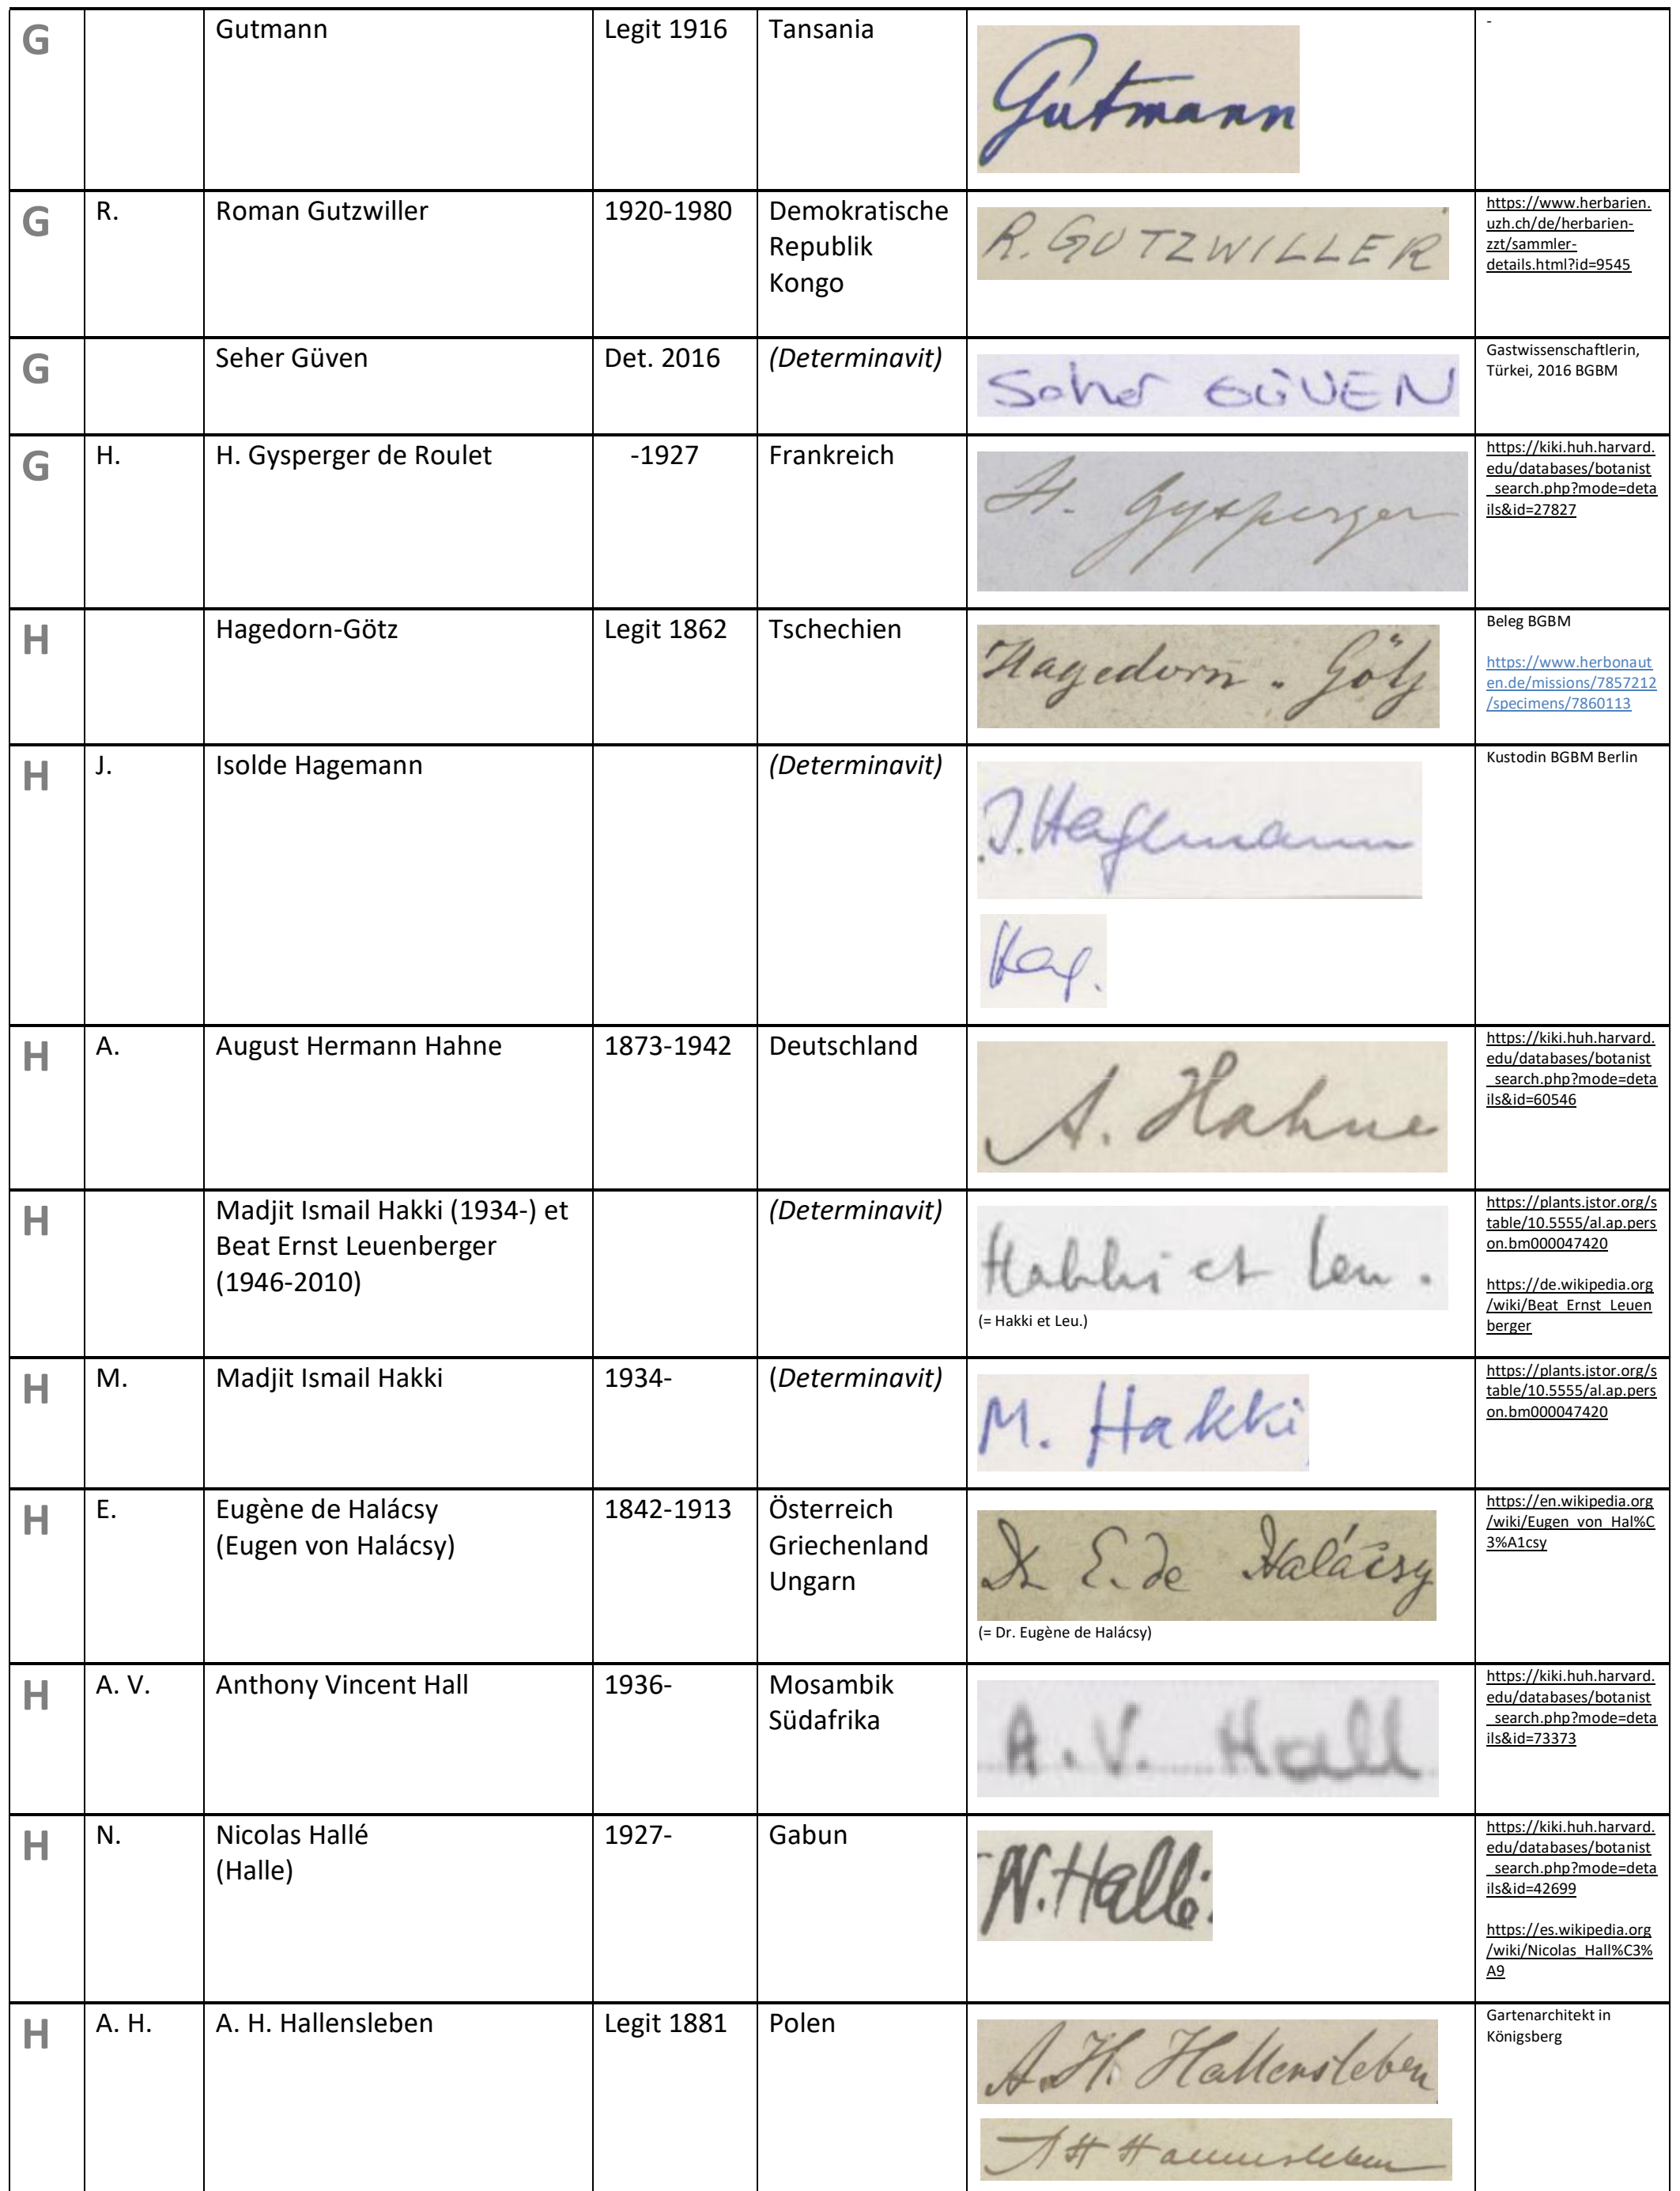 G Gutmann Legit 1916 Tansania Gutmann -
G R. Roman Gutzwiller 1920-1980 Demokratische R. GUTZWILLER https://www.herbarien.
Republik uzh.ch/de/herbarien-
Kongo zzt/sammler-
details.html?id=9545
G Seher Güven Det. 2016 (Determinavit) Seher GÜVEN Gastwissenschaftlerin,
Türkei, 2016 BGBM
G H. H. Gysperger de Roulet -1927 Frankreich H. Gysperger https://kiki.huh.harvard.
edu/databases/botanist
_search.php?mode=deta
ils&id=27827
H Hagedorn-Götz Legit 1862 Tschechien Hagedorn - Götz Beleg BGBM
https://www.herbonaut
en.de/missions/7857212
/specimens/7860113
H J. Isolde Hagemann (Determinavit) J. Hagemann Kustodin BGBM Berlin
Hag.
H A. August Hermann Hahne 1873-1942 Deutschland A. Hahne https://kiki.huh.harvard.
edu/databases/botanist
_search.php?mode=deta
ils&id=60546
H Madjit Ismail Hakki (1934-) et (Determinavit) Hakki et Leu. https://plants.jstor.org/s
Beat Ernst Leuenberger table/10.5555/al.ap.pers
(1946-2010) on.bm000047420
https://de.wikipedia.org
/wiki/Beat_Ernst_Leuen
(= Hakki et Leu.) berger
H M. Madjit Ismail Hakki 1934- (Determinavit) M. Hakki https://plants.jstor.org/s
table/10.5555/al.ap.pers
on.bm000047420
H E. Eugène de Halácsy 1842-1913 Österreich Dr. E. de Halácsy https://en.wikipedia.org
(Eugen von Halácsy) Griechenland /wiki/Eugen_von_Hal%C
Ungarn 3%A1csy
(= Dr. Eugène de Halácsy)
H A. V. Anthony Vincent Hall 1936- Mosambik A. V. Hall https://kiki.huh.harvard.
Südafrika edu/databases/botanist
_search.php?mode=deta
ils&id=73373
H N. Nicolas Hallé 1927- Gabun N. Hallé https://kiki.huh.harvard.
(Halle) edu/databases/botanist
_search.php?mode=deta
ils&id=42699
https://es.wikipedia.org
/wiki/Nicolas_Hall%C3%
A9
H A. H. A. H. Hallensleben Legit 1881 Polen A. H. Hallensleben Gartenarchitekt in
Königsberg
A H Hallensleben